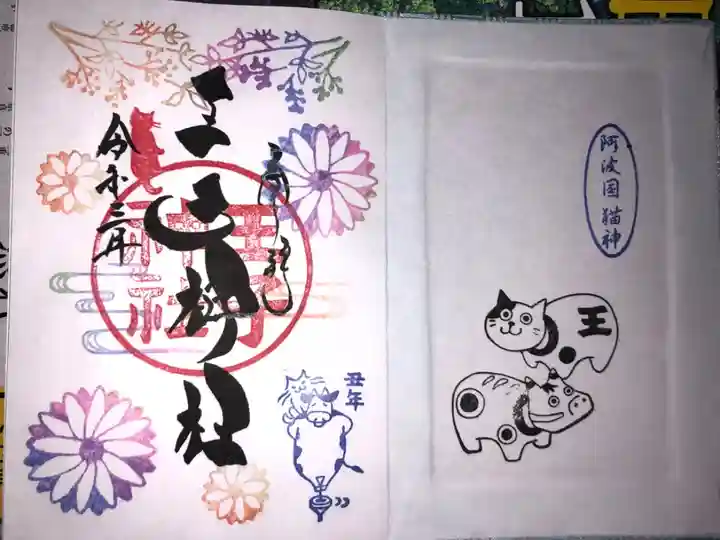 阿波国猫神
王
王子神社
王子
神社
令和三年
丑年